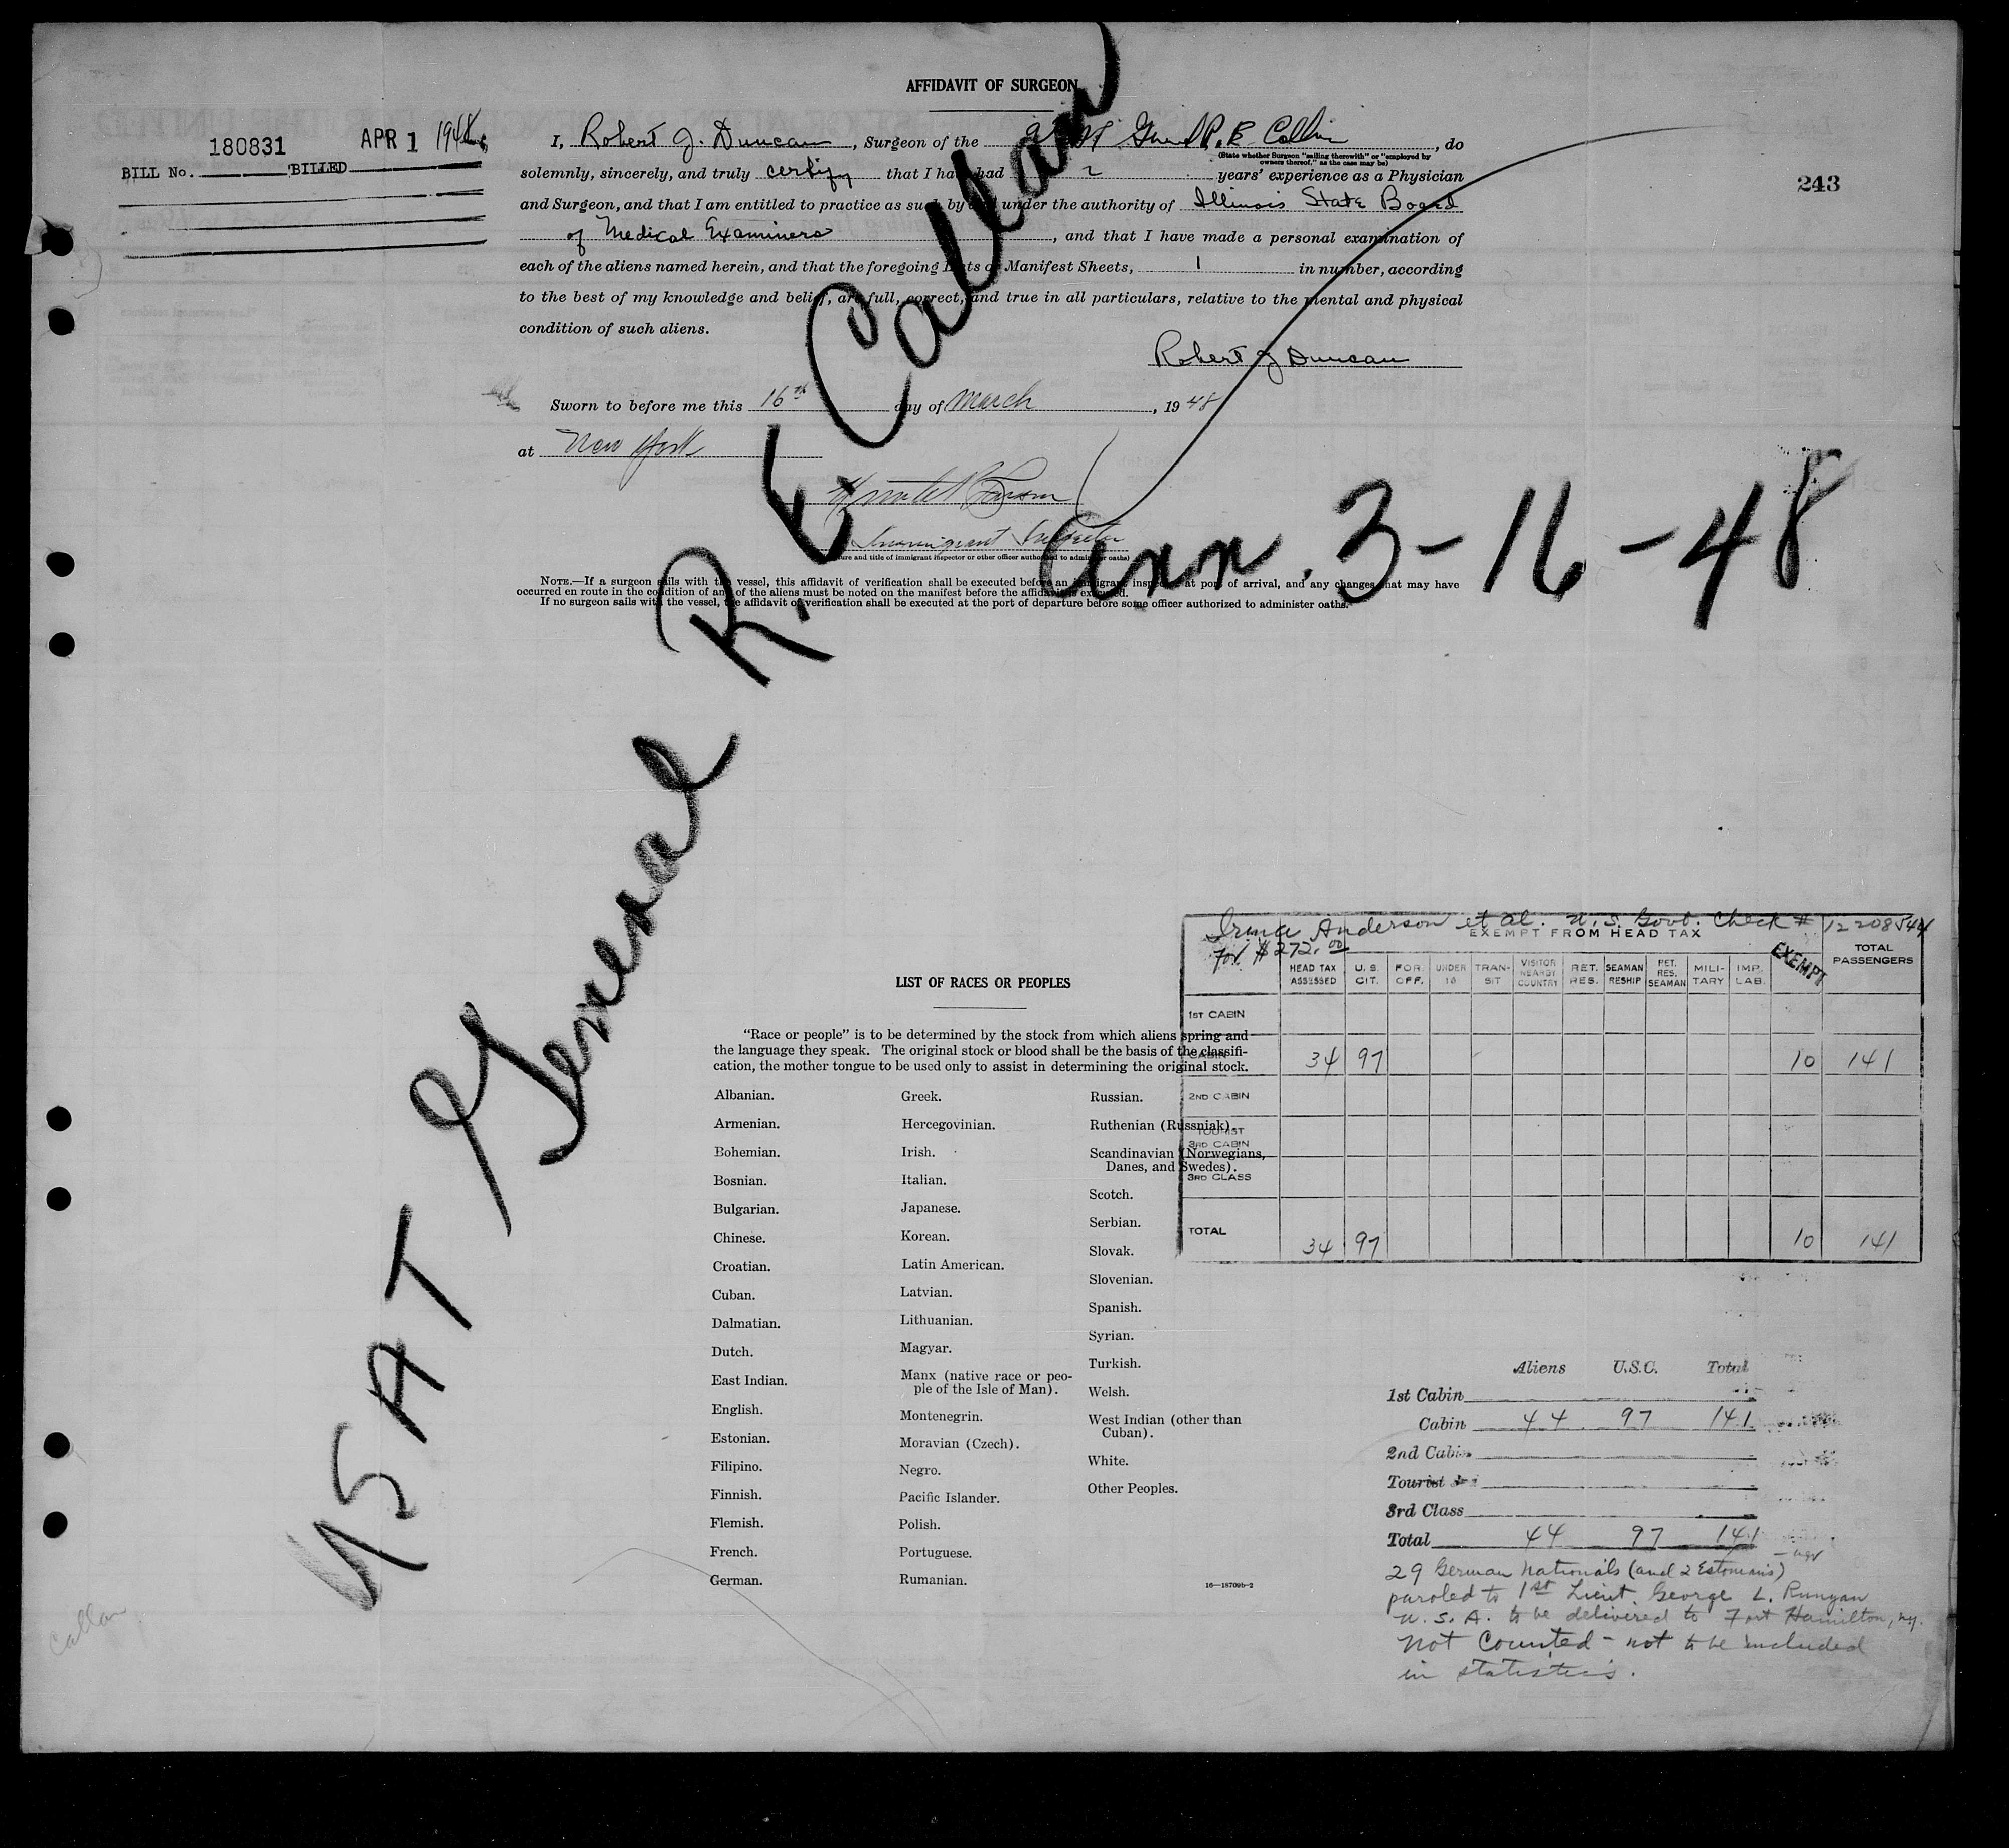 AFFIDAVIT OF SURGEON
180831 APR 1 1948
BILL No. BILLED
243
I, Robert J. Duncan, Surgeon of the USAT Genl R. E. Callan, do
(State whether Surgeon "sailing therewith" or "employed by
owners thereof," as the case may be)
solemnly, sincerely, and truly certify that I have had 2 years' experience as a Physician
and Surgeon, and that I am entitled to practice as such by and under the authority of Illinois State Board
of Medical Examiners, and that I have made a personal examination of
each of the aliens named herein, and that the foregoing Lists or Manifest Sheets, 1 in number, according
to the best of my knowledge and belief, are full, correct, and true in all particulars, relative to the mental and physical
condition of such aliens.
Robert J Duncan
Sworn to before me this 16th day of March, 1948
at New York
Immigrant Inspector
(Signature and title of immigrant inspector or other officer authorized to administer oaths)
NOTE.—If a surgeon sails with the vessel, this affidavit of verification shall be executed before an immigrant inspector at port of arrival, and any changes that may have
occurred en route in the condition of any of the aliens must be noted on the manifest before the affidavit is executed.
If no surgeon sails with the vessel, the affidavit of verification shall be executed at the port of departure before some officer authorized to administer oaths.
USAT General R. E. Callan
arr. 3-16-48
Irma Anderson et al. U.S. Govt. Check # 12208544
for $272.00
EXEMPT FROM HEAD TAX
HEAD TAX ASSESSED U.S. CIT. FOR. OFF. UNDER 16 TRANSIT VISITOR NEARBY COUNTRY RET. RES. SEAMAN RESHIP RET. RES. SEAMAN MILITARY IMP. LAB. EXEMPT TOTAL PASSENGERS
1ST CABIN
CABIN 34 97 10 141
2ND CABIN
TOURIST
3RD CABIN
3RD CLASS
TOTAL 34 97 10 141
LIST OF RACES OR PEOPLES
"Race or people" is to be determined by the stock from which aliens spring and
the language they speak. The original stock or blood shall be the basis of the classifi-
cation, the mother tongue to be used only to assist in determining the original stock.
Albanian.
Armenian.
Bohemian.
Bosnian.
Bulgarian.
Chinese.
Croatian.
Cuban.
Dalmatian.
Dutch.
East Indian.
English.
Estonian.
Filipino.
Finnish.
Flemish.
French.
German.
Greek.
Hercegovinian.
Irish.
Italian.
Japanese.
Korean.
Latin American.
Latvian.
Lithuanian.
Magyar.
Manx (native race or peo-
ple of the Isle of Man).
Montenegrin.
Moravian (Czech).
Negro.
Pacific Islander.
Polish.
Portuguese.
Rumanian.
Russian.
Ruthenian (Russniak).
Scandinavian (Norwegians,
Danes, and Swedes).
Scotch.
Serbian.
Slovak.
Slovenian.
Spanish.
Syrian.
Turkish.
Welsh.
West Indian (other than
Cuban).
White.
Other Peoples.
16—18709b-2
Aliens U.S.C. Total
1st Cabin
Cabin 44 97 141
2nd Cabin
Tourist
3rd Class
Total 44 97 141
29 German Nationals (and 2 Estonians)
paroled to 1st Lieut. George L. Runyan
U.S.A. to be delivered to Fort Hamilton, NY.
Not Counted - not to be included
in statistics.
Callan